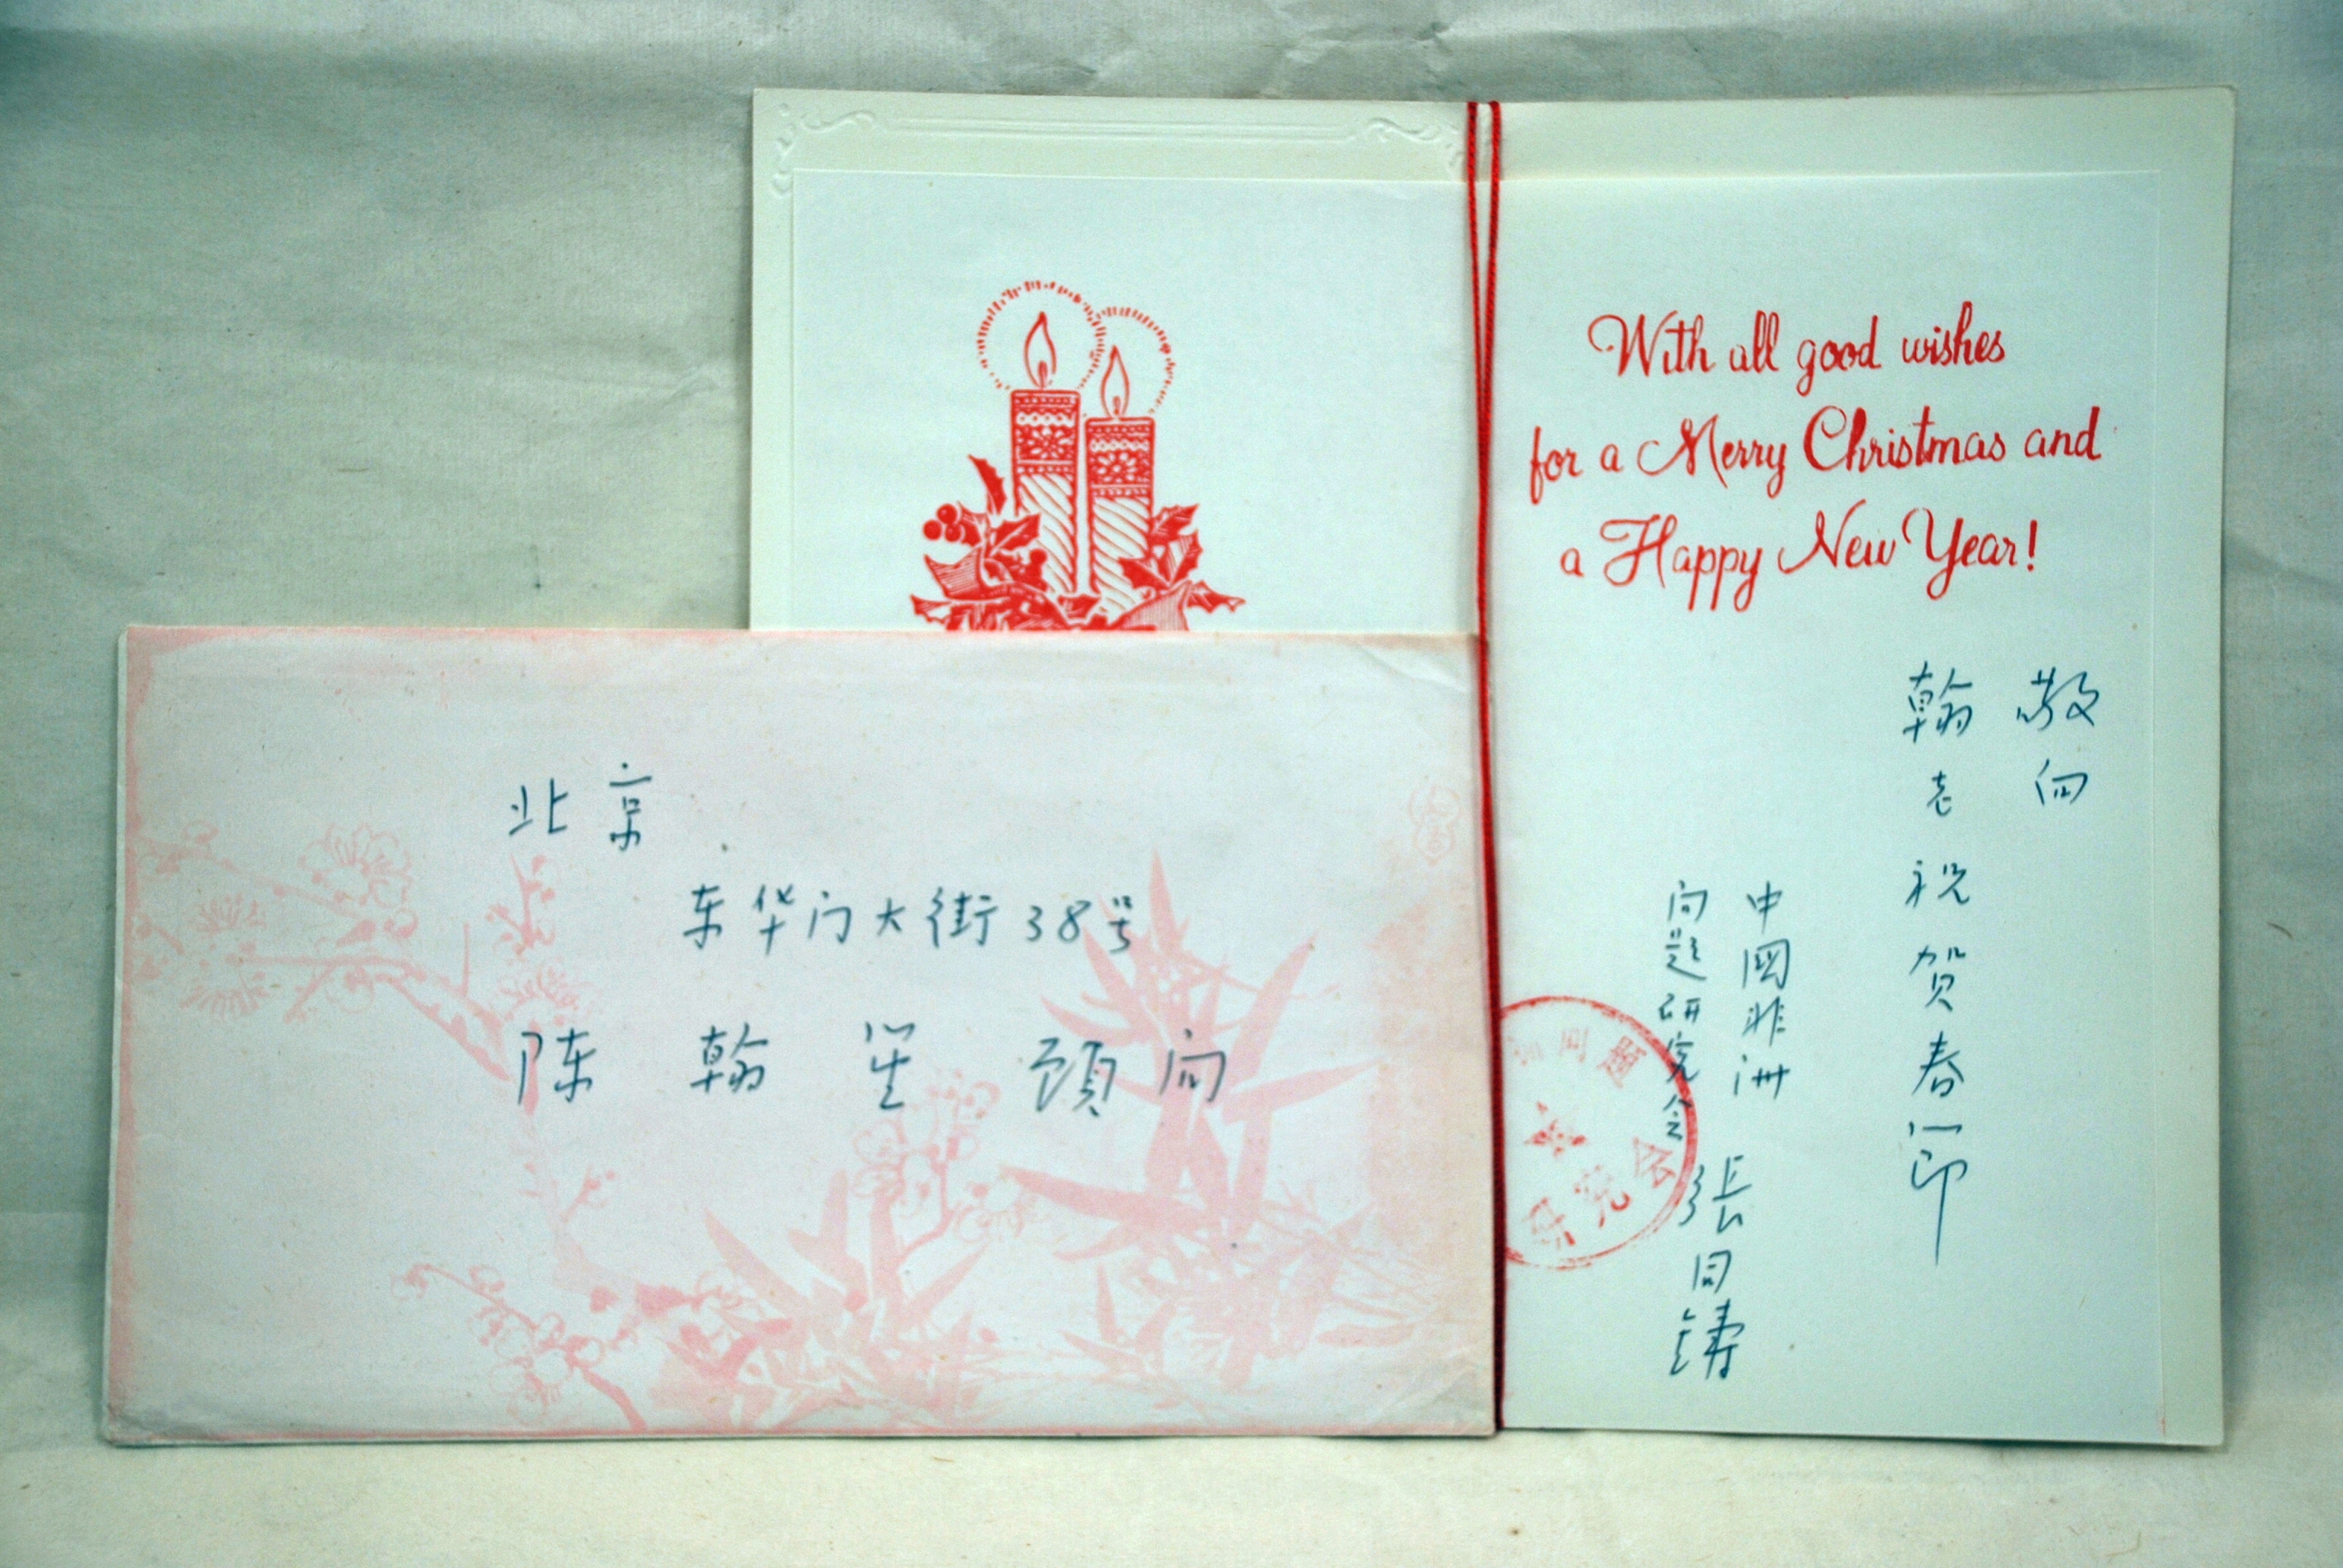 北京
东华门大街38号
陈翰笙 顾问
With all good wishes
for a Merry Christmas and
a Happy New Year!
敬向
翰老祝贺春节
中國非洲
问题研究会
張同鑄
问题
研究会